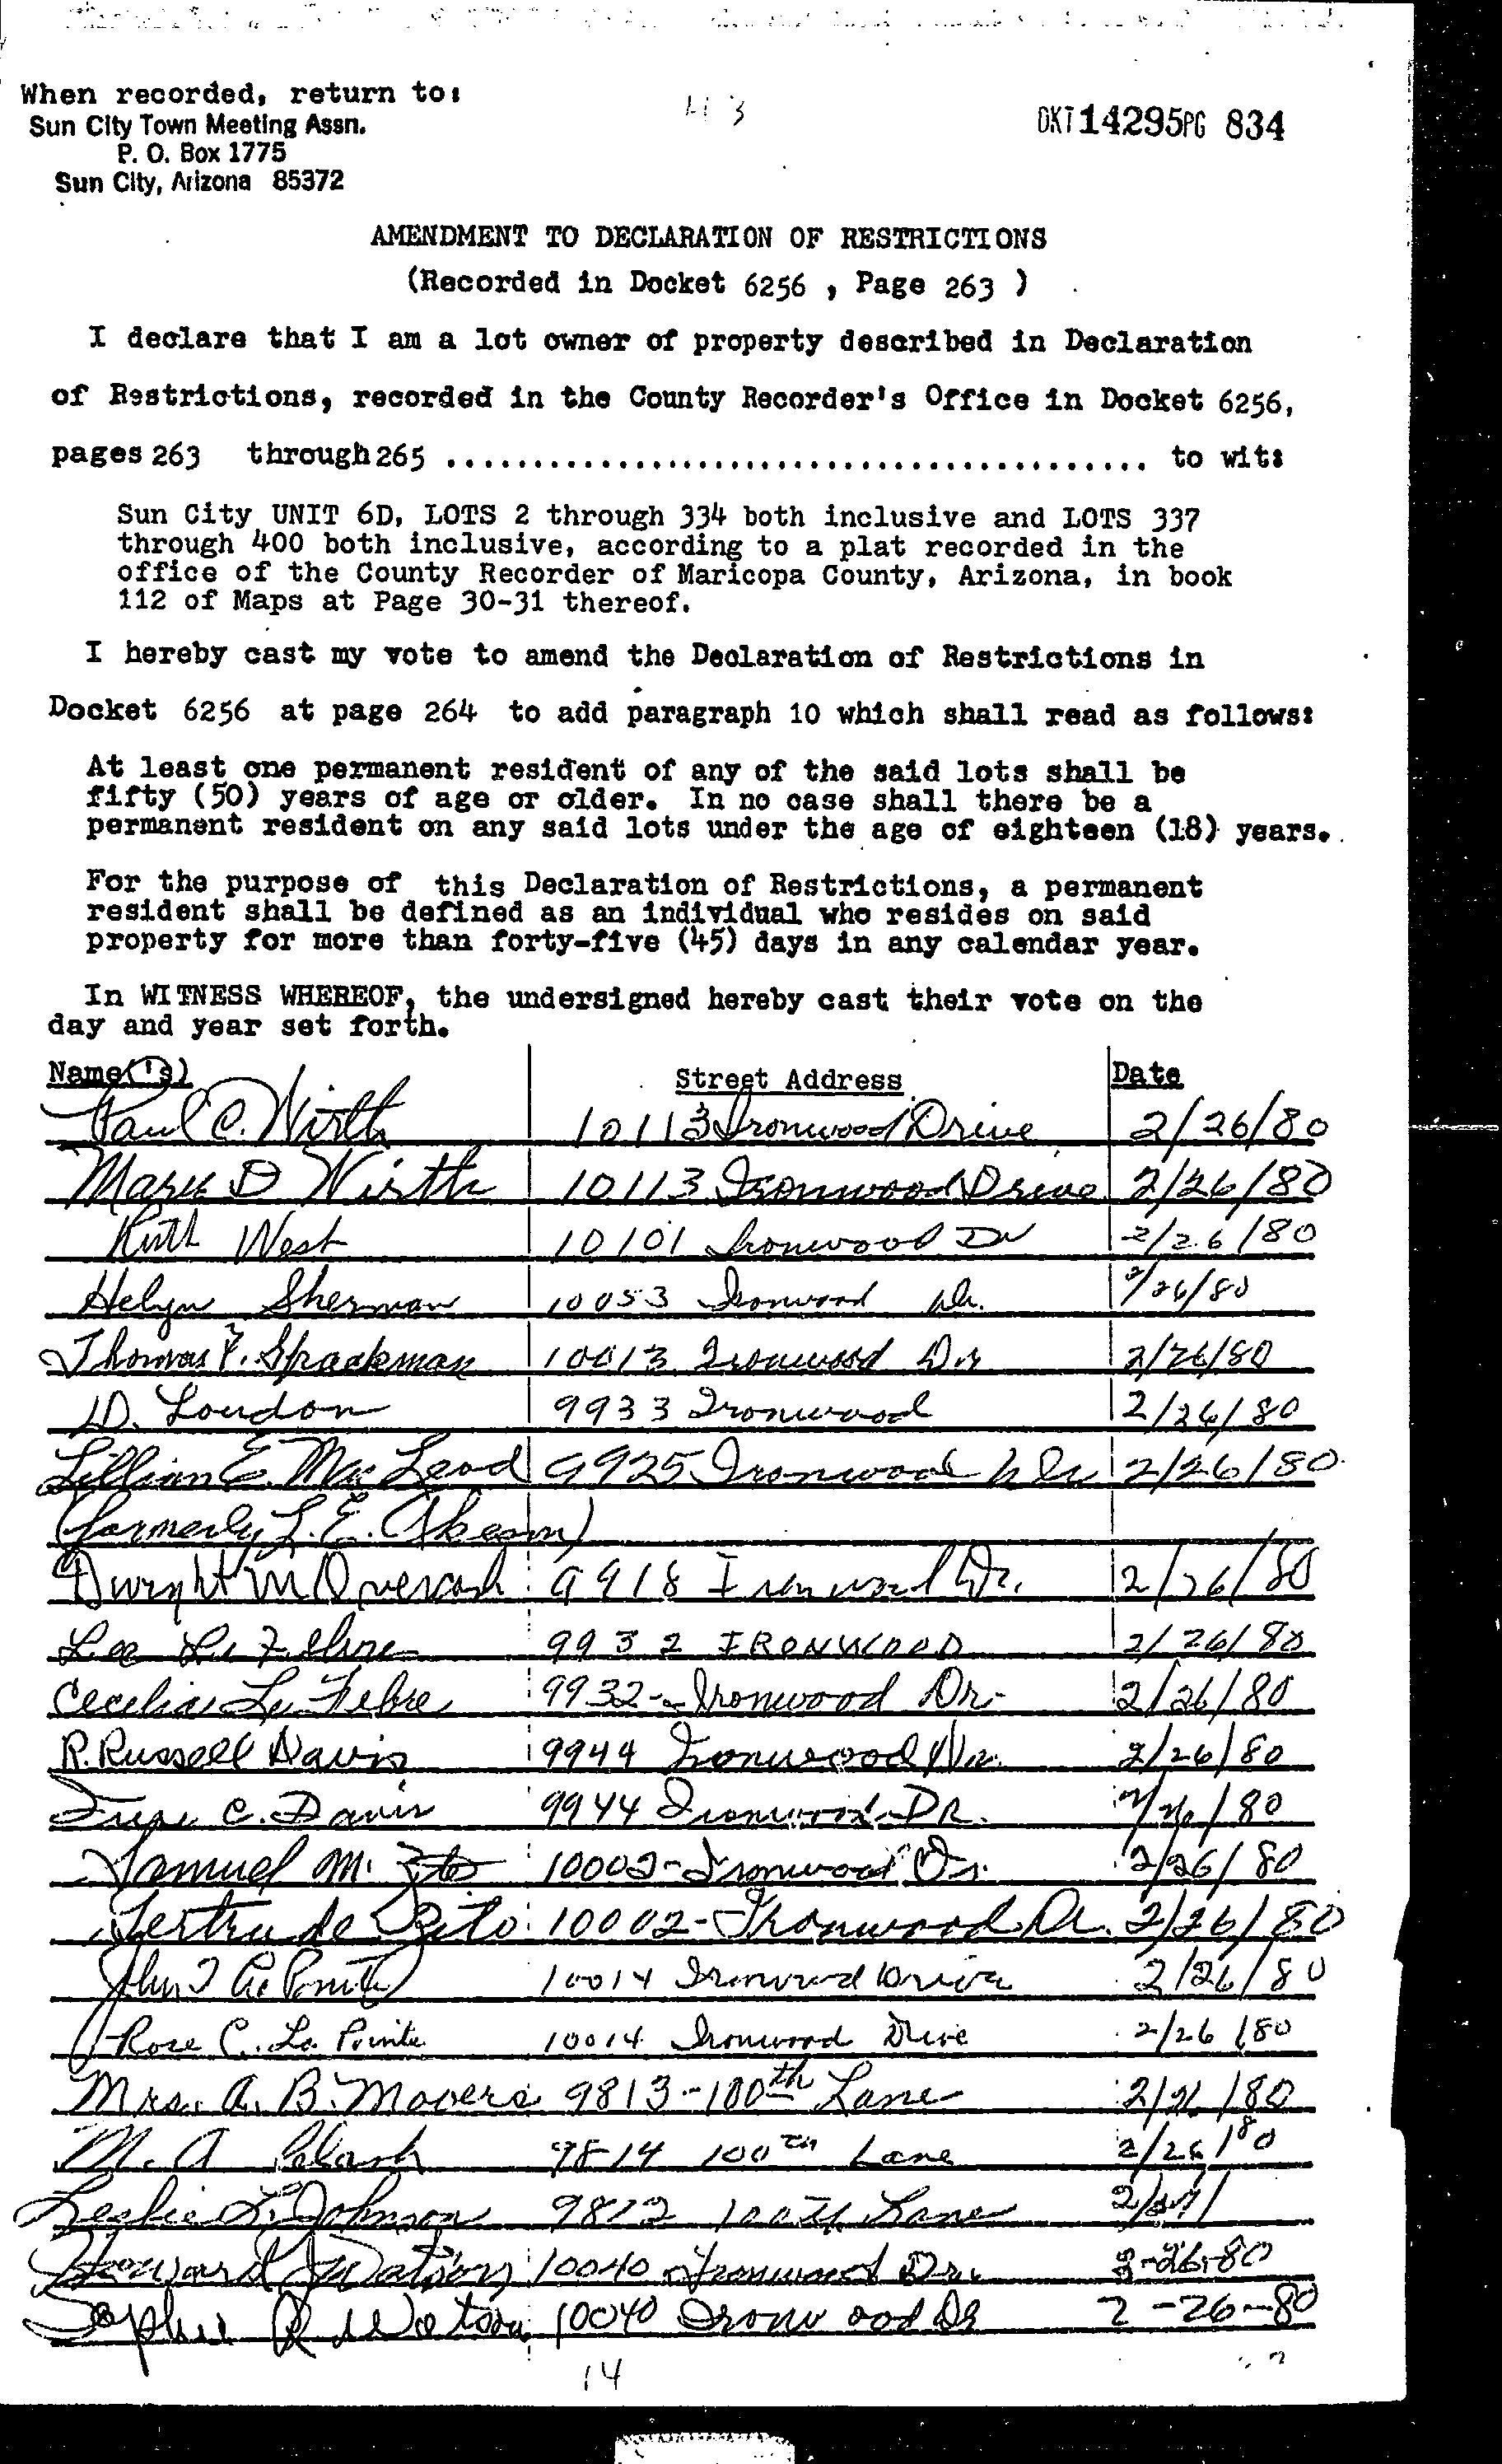 When recorded, return to:
Sun City Town Meeting Assn.
P. O. Box 1775
Sun City, Arizona 85372
DKT 14295 PG 834
AMENDMENT TO DECLARATION OF RESTRICTIONS
(Recorded in Docket 6256 , Page 263 )
I declare that I am a lot owner of property described in Declaration
of Restrictions, recorded in the County Recorder's Office in Docket 6256,
pages 263 through 265 ........................................ to wit:
Sun City UNIT 6D, LOTS 2 through 334 both inclusive and LOTS 337
through 400 both inclusive, according to a plat recorded in the
office of the County Recorder of Maricopa County, Arizona, in book
112 of Maps at Page 30-31 thereof.
I hereby cast my vote to amend the Declaration of Restrictions in
Docket 6256 at page 264 to add paragraph 10 which shall read as follows:
At least one permanent resident of any of the said lots shall be
fifty (50) years of age or older. In no case shall there be a
permanent resident on any said lots under the age of eighteen (18) years.
For the purpose of this Declaration of Restrictions, a permanent
resident shall be defined as an individual who resides on said
property for more than forty-five (45) days in any calendar year.
In WITNESS WHEREOF, the undersigned hereby cast their vote on the
day and year set forth.
Name('s) Street Address Date
Paul C. Wirth 10113 Ironwood Drive 2/26/80
Mary D Wirth 10113 Ironwood Drive 2/26/80
Ruth West 10101 Ironwood Dr 2/26/80
Helyn Sherman 10053 Ironwood Dr. 2/26/80
Thomas F. Sparkman 10013 Ironwood Dr 2/26/80
D. Loudon 9933 Ironwood 2/26/80
Lillian E. MacLeod 9925 Ironwood Dr 2/26/80
(formerly L. E.
Dwight M Overcash 9918 Ironwood Dr. 2/26/80
Lee Le Febre 9932 IRONWOOD 2/26/80
Cecelia Le Febre 9932 - Ironwood Dr. 2/26/80
R. Russell Davis 9944 Ironwood Dr. 2/26/80
C. Davis 9944 Ironwood DR. 2/26/80
Samuel M. Zito 10002 - Ironwood Dr. 2/26/80
Gertrude Zito 10002 - Ironwood Dr. 2/26/80
John La Pointe 10014 Ironwood Drive 2/26/80
Rose C. La Pointe 10014 Ironwood Drive 2/26/80
Mrs. A. B. Movers 9813 - 100th Lane 2/26/80
M. A 9814 100TH Lane 2/26/80
Leslie L. Johnson 9822 100th Lane
Howard J Watson 10040 Ironwood Dr. 2-26-80
Sophie R Watson 10040 Ironwood Dr 2-26-80
14